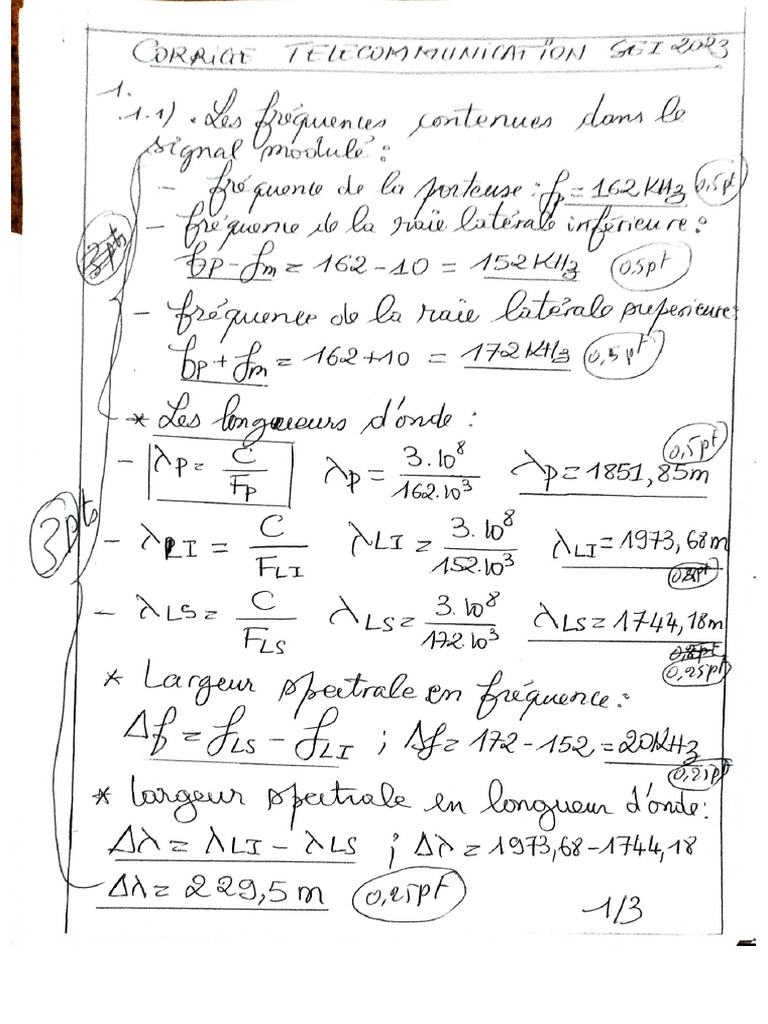 CORRIGE TELECOMMUNICATION SEI 2023
1.
1.1) . Les fréquences contenues dans le
signal modulé :
- fréquence de la porteuse : fp = 162 KHz 0,5pt
- fréquence de la raie latérale inférieure :
fp - fm = 162 - 10 = 152 KHz 0,5pt
3pts
- fréquence de la raie latérale superieure :
fp + fm = 162 + 10 = 172 KHz 0,5pt
* Les longueurs d'onde :
- λP = C/FP λP = 3.10⁸/162.10³ λP = 1851,85m 0,5pt
3pts
- λLI = C/FLI λLI = 3.10⁸/152.10³ λLI = 1973,68m
- λLS = C/FLS λLS = 3.10⁸/172.10³ λLS = 1744,18m
0,25pt
* Largeur spectrale en fréquence :
Δf = fLS - fLI ; Δf = 172 - 152 = 20KHz
0,25pt
* largeur spectrale en longueur d'onde :
Δλ = λLI - λLS ; Δλ = 1973,68 - 1744,18
Δλ = 229,5 m 0,25pt
1/3